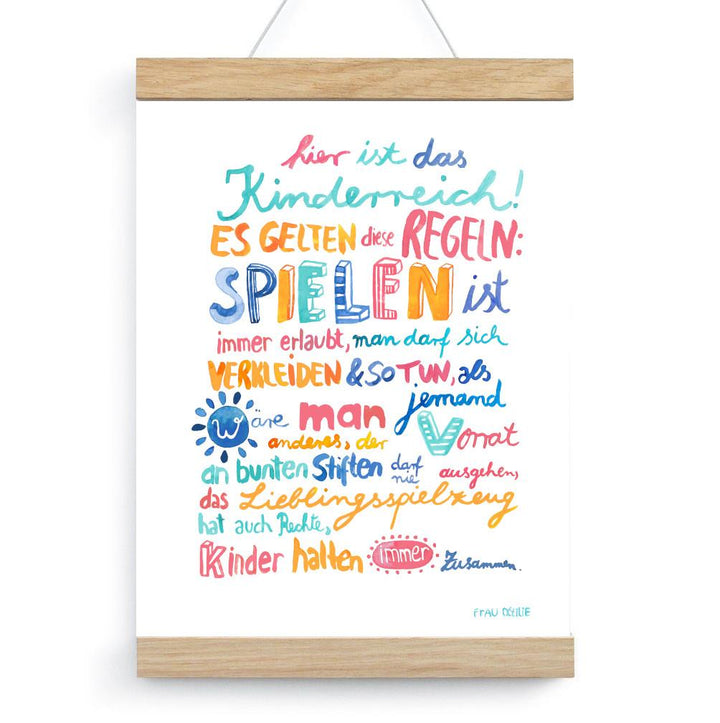 hier ist das
Kinderreich!
ES GELTEN diese REGELN:
SPIELEN ist
immer erlaubt, man darf sich
VERKLEIDEN & SO TUN, als
wäre man jemand
anderes, der Vorrat
an bunten Stiften darf nie ausgehen,
das Lieblingsspielzeug
hat auch Rechte,
Kinder halten immer zusammen.
FRAU OTTILIE